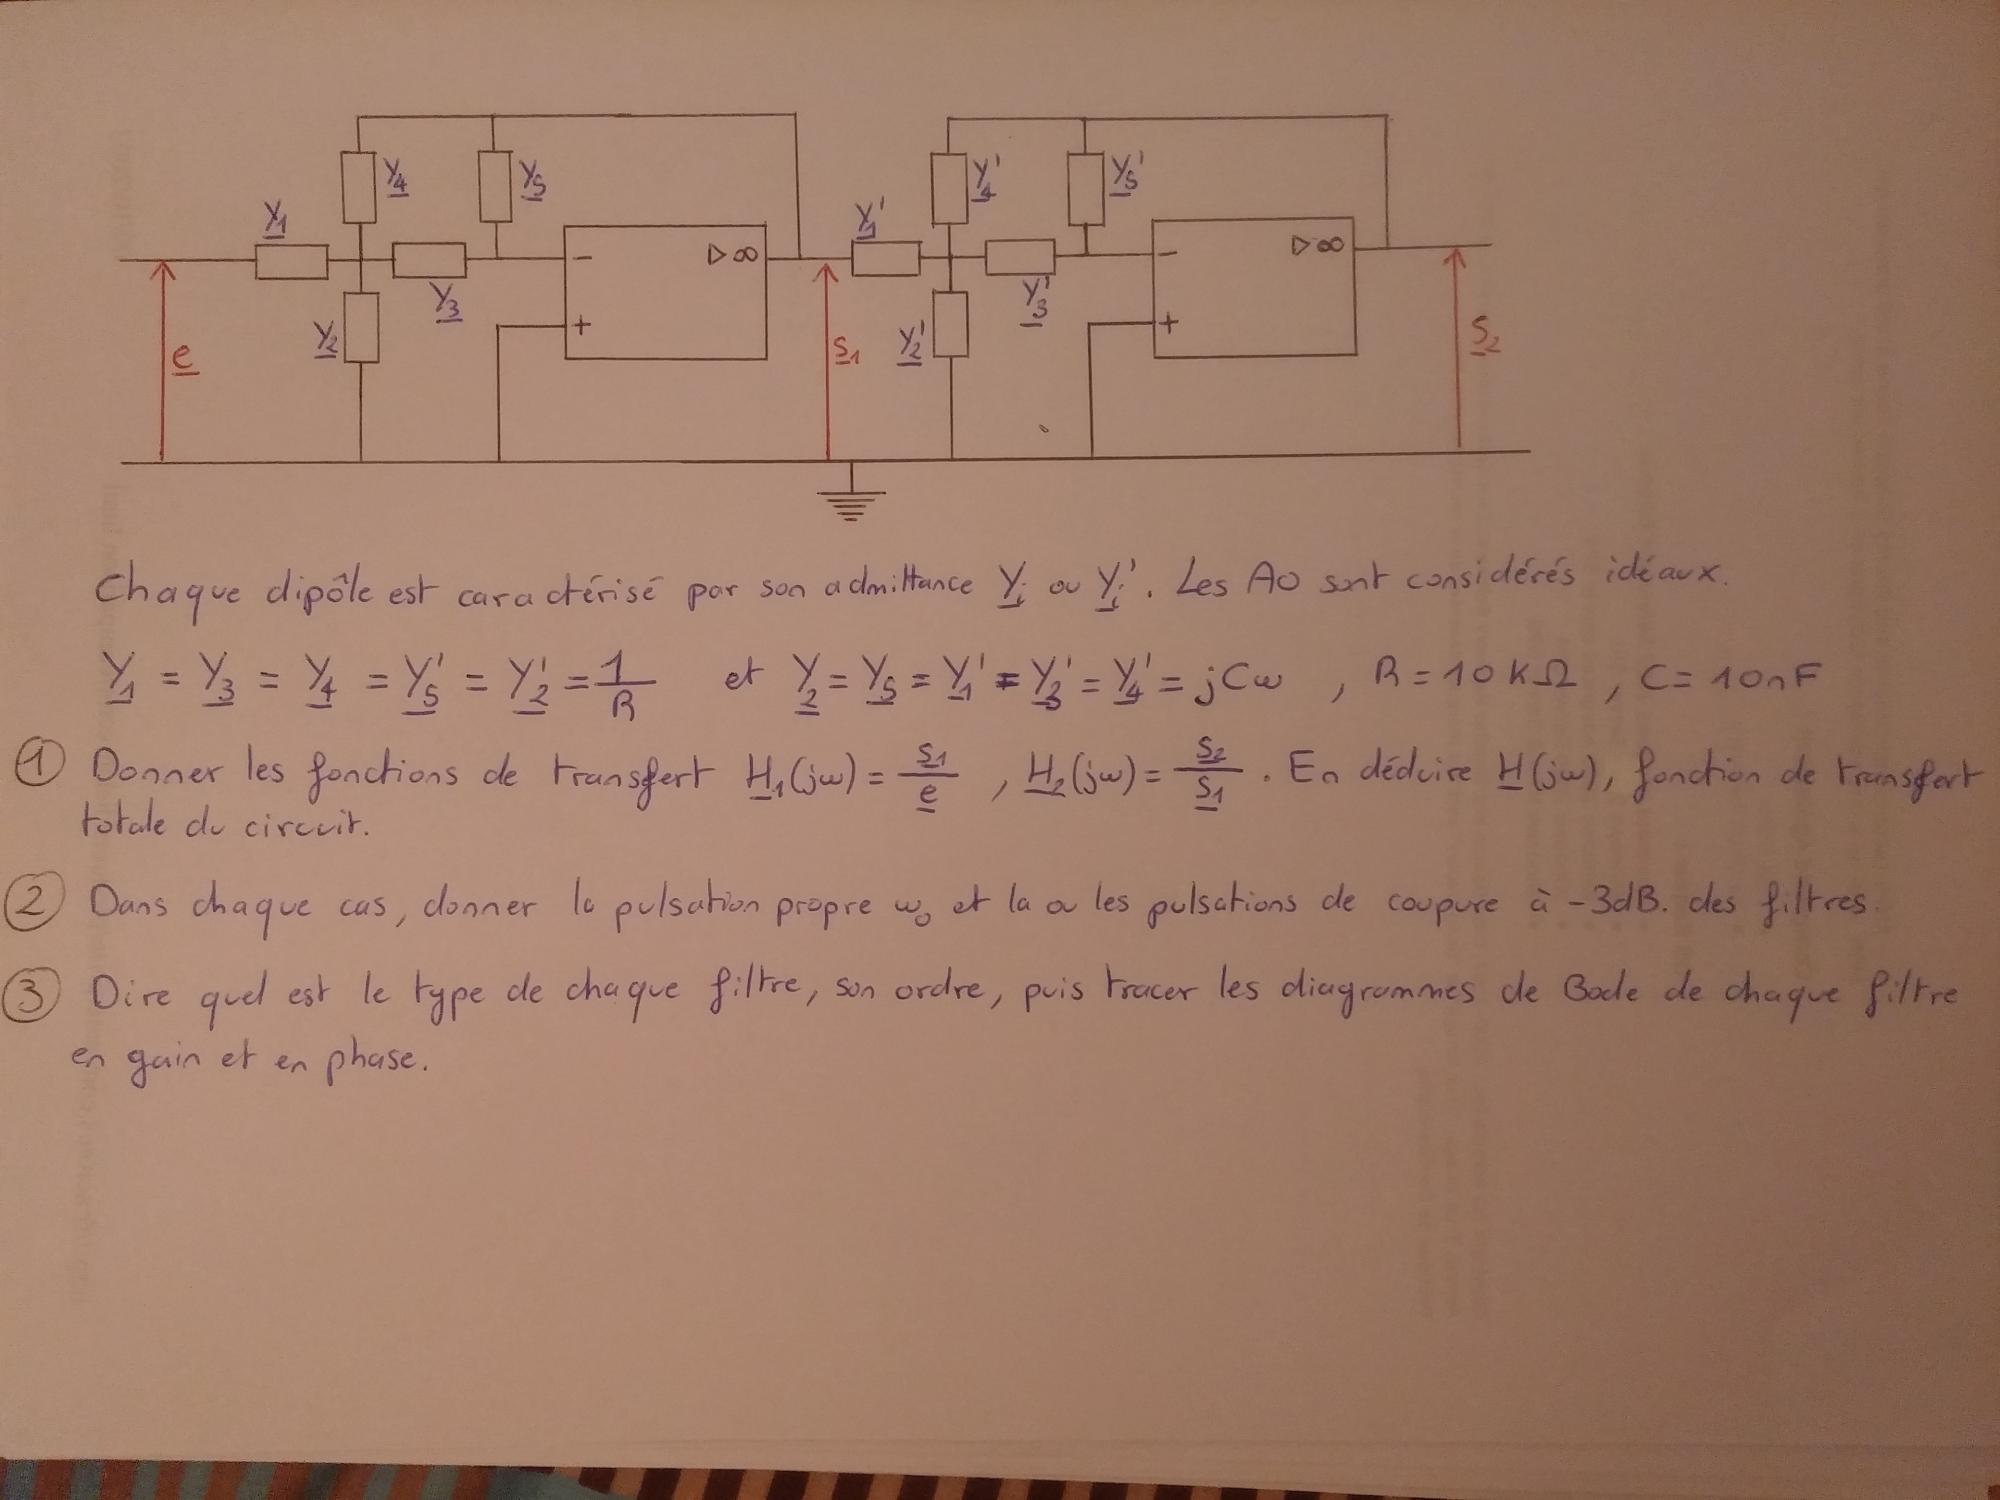 Y1 Y4 Y5 Y1' Y4' Y5'
▷∞ ▷∞
- -
Y3 Y3'
Y2 Y2'
+ +
e s1 s2
Chaque dipôle est caractérisé par son admittance Yi ou Yi'. Les AO sont considérés idéaux.
Y1 = Y3 = Y4 = Y5' = Y2' = 1/R et Y2 = Y5 = Y1' = Y3' = Y4' = jCω , R = 10 kΩ , C = 10nF
① Donner les fonctions de transfert H1(jω) = s1/e , H2(jω) = s2/s1 . En déduire H(jω), fonction de transfert
totale du circuit.
② Dans chaque cas, donner la pulsation propre ω0 et la ou les pulsations de coupure à -3dB. des filtres.
③ Dire quel est le type de chaque filtre, son ordre, puis tracer les diagrammes de Bode de chaque filtre
en gain et en phase.